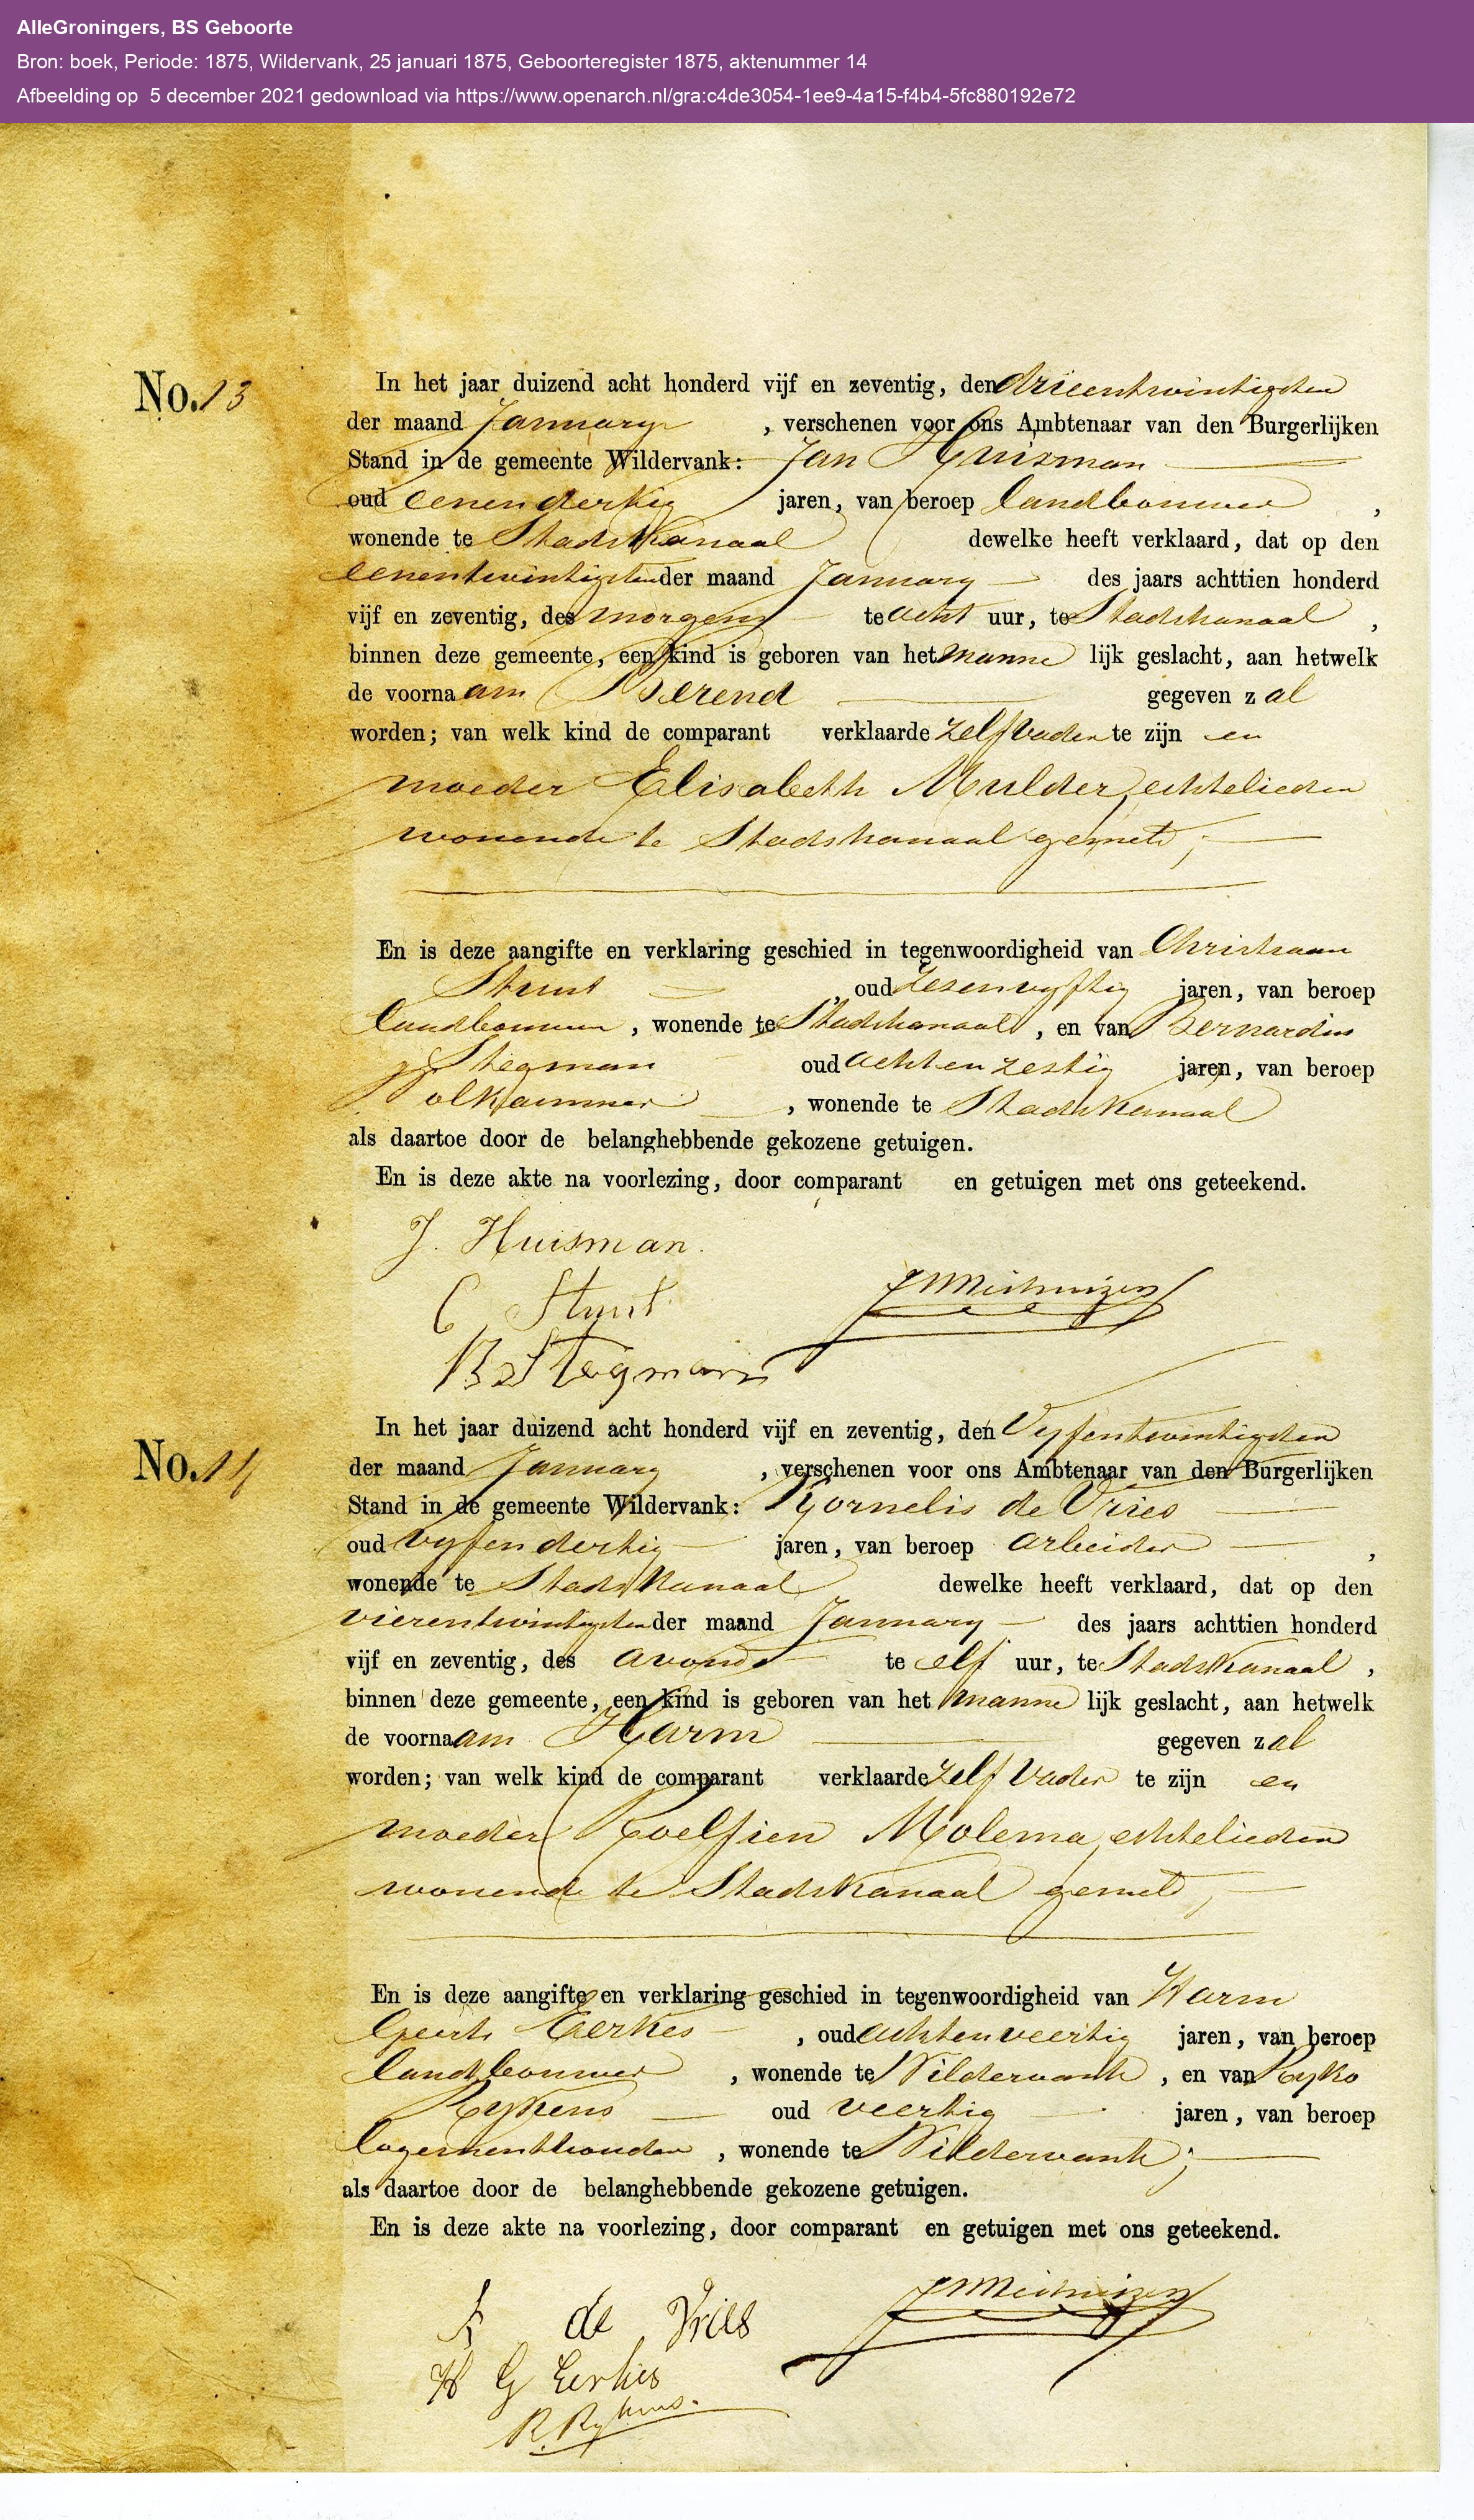 AlleGroningers, BS Geboorte
Bron: boek, Periode: 1875, Wildervank, 25 januari 1875, Geboorteregister 1875, aktenummer 14
Afbeelding op 5 december 2021 gedownload via https://www.openarch.nl/gra:c4de3054-1ee9-4a15-f4b4-5fc880192e72
No. 13
In het jaar duizend acht honderd vijf en zeventig, den drieentwintigsten
der maand January, verschenen voor ons Ambtenaar van den Burgerlijken
Stand in de gemeente Wildervank: Jan Huisman
oud eenendertig jaren, van beroep landbouwer,
wonende te Stadskanaal dewelke heeft verklaard, dat op den
eenentwintigsten der maand January des jaars achttien honderd
vijf en zeventig, des morgens te acht uur, te Stadskanaal,
binnen deze gemeente, een kind is geboren van het mannelijk geslacht, aan hetwelk
de voornaam Berend gegeven zal
worden; van welk kind de comparant verklaarde zelf vader te zijn en
moeder Elisabeth Mulder, echtelieden
wonende te Stadskanaal gemeld;
En is deze aangifte en verklaring geschied in tegenwoordigheid van Christiaan
Stunt, oud zesenvyftig jaren, van beroep
landbouwer, wonende te Stadskanaal, en van Bernardus
Stegman oud achtenzestig jaren, van beroep
, wonende te Stadskanaal
als daartoe door de belanghebbende gekozene getuigen.
En is deze akte na voorlezing, door comparant en getuigen met ons geteekend.
J. Huisman.
C Stunt
B Stegman
No. 14
In het jaar duizend acht honderd vijf en zeventig, den Vyfentwintigsten
der maand January, verschenen voor ons Ambtenaar van den Burgerlijken
Stand in de gemeente Wildervank: Kornelis de Vries
oud vyfendertig jaren, van beroep arbeider,
wonende te Stadskanaal dewelke heeft verklaard, dat op den
vierentwintigsten der maand January des jaars achttien honderd
vijf en zeventig, des avonds te elf uur, te Stadskanaal,
binnen deze gemeente, een kind is geboren van het mannelijk geslacht, aan hetwelk
de voornaam Harm gegeven zal
worden; van welk kind de comparant verklaarde zelf vader te zijn en
moeder Roelfien Molema, echtelieden
wonende te Stadskanaal gemeld;
En is deze aangifte en verklaring geschied in tegenwoordigheid van Harm
Geerts Eerkes, oud achtenveertig jaren, van beroep
landbouwer, wonende te Wildervank, en van Ryko
Rykens oud veertig jaren, van beroep
logementhouder, wonende te Wildervank;
als daartoe door de belanghebbende gekozene getuigen.
En is deze akte na voorlezing, door comparant en getuigen met ons geteekend.
K de Vries
H G Eerkes
R. Rykens.